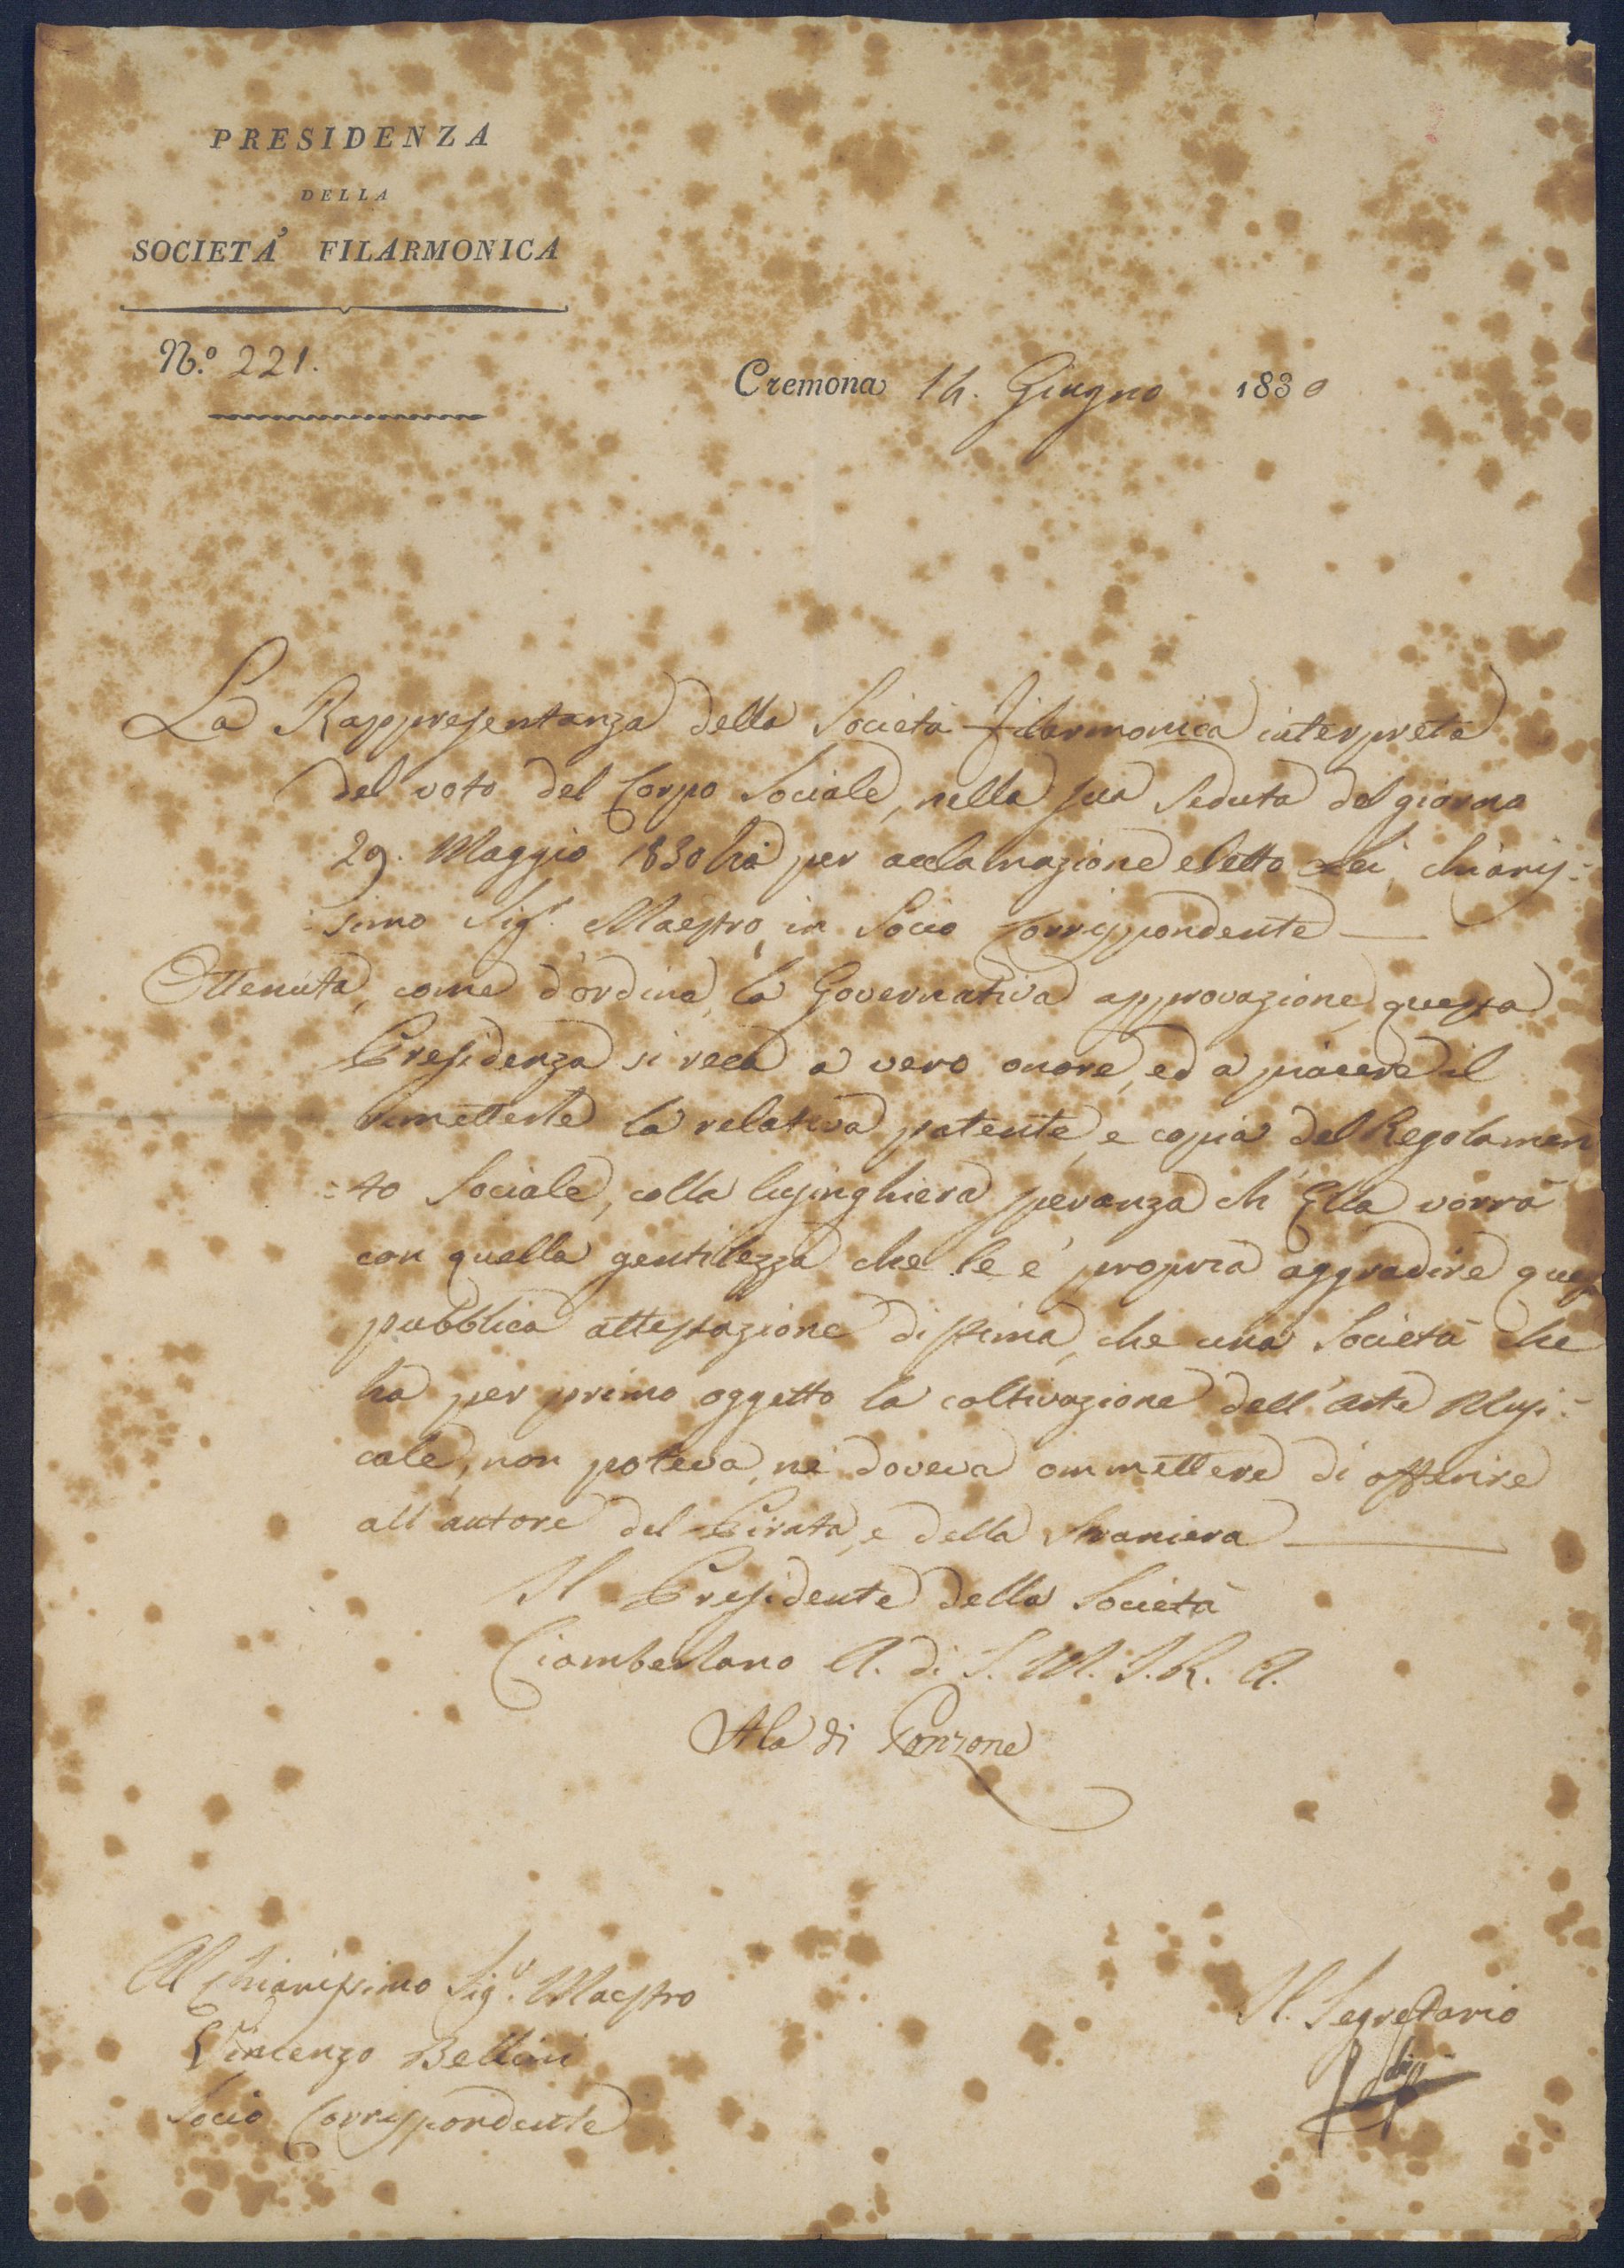 PRESIDENZA
DELLA
SOCIETA' FILARMONICA
N.º 221.
Cremona 14. Giugno 1830
La Rappresentanza della Società Filarmonica interprete
del voto del Corpo Sociale, nella sua seduta del giorno
29. Maggio 1830 ha per acclamazione eletto Lei, chiaris-
simo Sigr. Maestro, in Socio Corrispondente
Ottenuta, come d'ordine, la Governativa approvazione, questa
Presidenza si reca a vero onore, ed a piacere il
rimetterle la relativa patente, e copia del Regolamen
-to Sociale, colla lusinghiera speranza ch'Ella vorrà
con quella gentilezza che le è propria aggradire ques
pubblica attestazione di stima, che una Società che
ha per primo oggetto la coltivazione dell'arte Musi-
cale, non poteva, nè doveva ommettere di offerire
all'autore del Pirata, e della Straniera
Il Presidente della Società
Ciamberlano A. di S. M. I. R. A.
Ala di Ponzone
Al Chiarissimo Sigr. Maestro
Vincenzo Bellini
Socio Corrispondente
Il Segretario